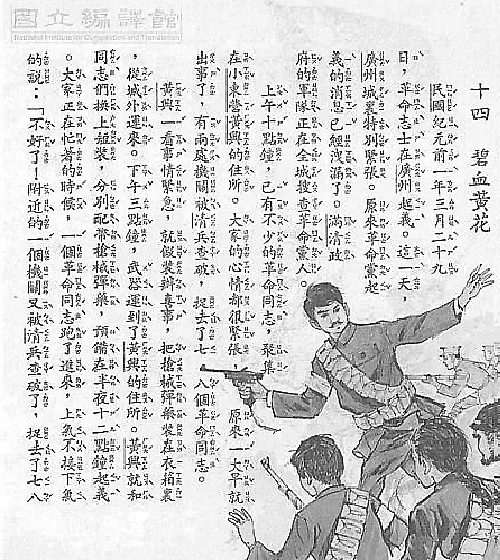 國立編譯館
National Institute for Compilation and Translation
十四　碧血黃花
民國紀元前一年三月二十九
日，革命志士在廣州起義。這一天，
廣州城裏特別緊張。原來革命黨起
義的消息已經洩漏了。滿清政
府的軍隊正在全城搜查革命黨人。
上午十點鐘，已有不少的革命同志，聚集
在小東營黃興的住所。大家的心情都很緊張，原來一大早就
出事了，有兩處機關被清兵查破，捉去了七、八個革命同志。
黃興一看事情緊急，就假裝辦喜事，把槍械彈藥裝在衣箱裏
，從城外運來。下午三點鐘，武器運到了黃興的住所。黃興就和
同志們換上短裝，分別配帶槍械彈藥，預備在半夜十二點鐘起義
。大家正在忙著的時候，一個革命同志跑了進來，上氣不接下氣
的說：「不好了！附近的一個機關又被清兵查破了，捉去了七八